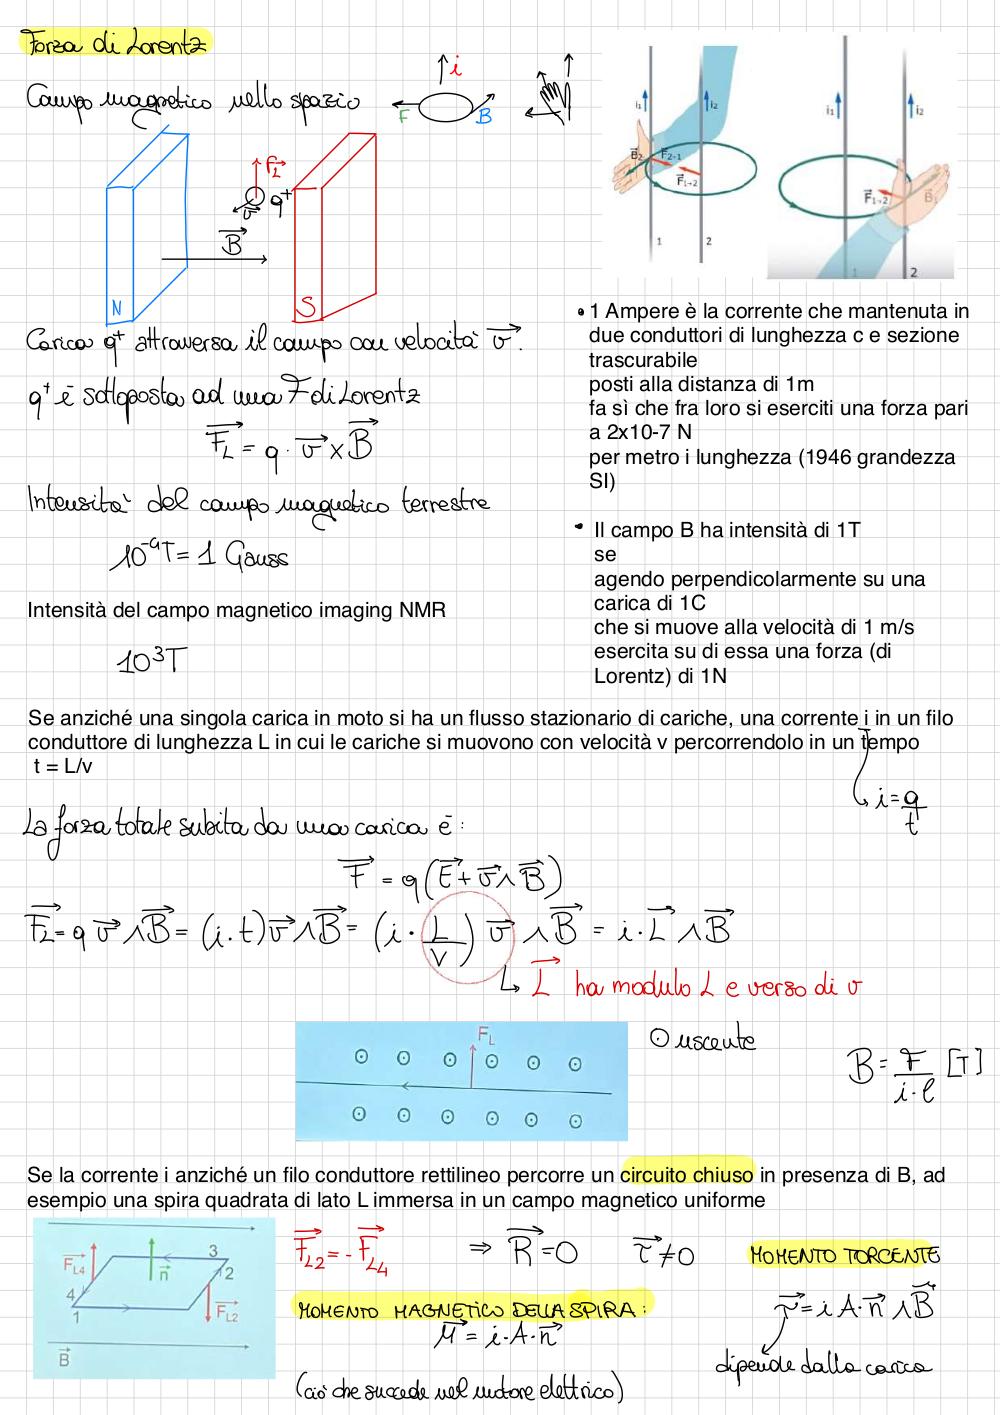 Forza di Lorentz
Campo magnetico nello spazio
i
F
B
i₁
i₂
B⃗₂
F⃗₂→₁
F⃗₁→₂
1
2
i₁
i₂
F⃗₁→₂
B⃗₁
1
2
F⃗L
v⃗
q⁺
B⃗
N
S
Carica q⁺ attraversa il campo con velocità v⃗.
q⁺ è sottoposta ad una F di Lorentz
F⃗L = q · v⃗ × B⃗
Intensità del campo magnetico terrestre
10⁻⁴T = 1 Gauss
Intensità del campo magnetico imaging NMR
10³T
• 1 Ampere è la corrente che mantenuta in
due conduttori di lunghezza c e sezione
trascurabile
posti alla distanza di 1m
fa sì che fra loro si eserciti una forza pari
a 2x10-7 N
per metro i lunghezza (1946 grandezza
SI)
• Il campo B ha intensità di 1T
se
agendo perpendicolarmente su una
carica di 1C
che si muove alla velocità di 1 m/s
esercita su di essa una forza (di
Lorentz) di 1N
Se anziché una singola carica in moto si ha un flusso stazionario di cariche, una corrente i in un filo
conduttore di lunghezza L in cui le cariche si muovono con velocità v percorrendolo in un tempo
t = L/v
↳ i = q/t
La forza totale subita da una carica è:
F⃗ = q(E⃗ + v⃗ ∧ B⃗)
F⃗L = q v⃗ ∧ B⃗ = (i·t) v⃗ ∧ B⃗ = (i · L/v) v⃗ ∧ B⃗ = i · L⃗ ∧ B⃗
↳ L⃗ ha modulo L e verso di v
FL
⊙ uscente
B = F/i·l [T]
Se la corrente i anziché un filo conduttore rettilineo percorre un circuito chiuso in presenza di B, ad
esempio una spira quadrata di lato L immersa in un campo magnetico uniforme
F⃗L4
n⃗
3
2
4
1
F⃗L2
B⃗
F⃗L2 = - F⃗L4 ⇒ R⃗ = 0 τ⃗ ≠ 0
MOMENTO TORCENTE
MOMENTO MAGNETICO DELLA SPIRA:
M⃗ = i · A · n⃗
τ⃗ = i A · n⃗ ∧ B⃗
dipende dalla carica
(ciò che succede nel motore elettrico)